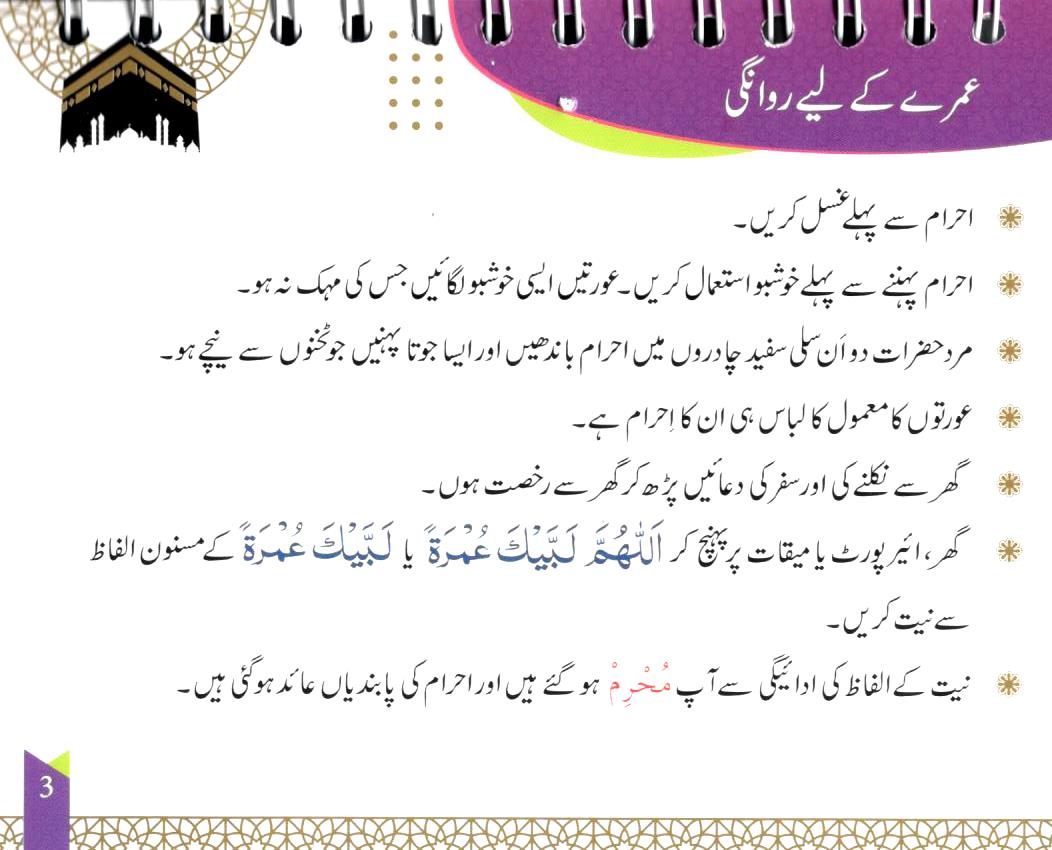 عمرے کے لیے روانگی
احرام سے پہلے غسل کریں۔
احرام پہننے سے پہلے خوشبو استعمال کریں۔ عورتیں ایسی خوشبو لگائیں جس کی مہک نہ ہو۔
مرد حضرات دو اَن سلی سفید چادروں میں احرام باندھیں اور ایسا جوتا پہنیں جو ٹخنوں سے نیچے ہو۔
عورتوں کا معمول کا لباس ہی ان کا اِحرام ہے۔
گھر سے نکلنے کی اور سفر کی دعائیں پڑھ کر گھر سے رخصت ہوں۔
گھر، ائیر پورٹ یا میقات پر پہنچ کر اَللّٰهُمَّ لَبَّيْكَ عُمْرَةً یا لَبَّيْكَ عُمْرَةً کے مسنون الفاظ
سے نیت کریں۔
نیت کے الفاظ کی ادائیگی سے آپ مُحْرِمْ ہو گئے ہیں اور احرام کی پابندیاں عائد ہو گئی ہیں۔
3